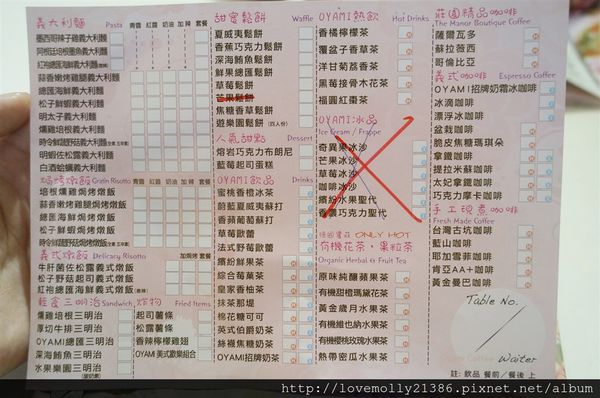 義大利麵 Pasta 青醬 紅醬 奶油 加辣 套餐
墨西哥辣子雞義大利麵
阿根廷培根墨魚義大利麵
紅袍總匯海鮮義大利麵
蒜香嫩烤雞腿義大利麵
總匯海鮮義大利麵
松子鮮蝦義大利麵
明太子義大利麵
燻雞培根義大利麵
明蝦佐松露義大利麵
白酒蛤蠣義大利麵
焗烤燉飯 Gratin Risotto 青醬 紅醬 奶油 加辣 套餐
培根燻雞焗烤燉飯
蒜香嫩雞焗烤燉飯
總匯海鮮焗烤燉飯
松子鮮蝦焗烤燉飯
義式燉飯 Delicary Risotto 加焗烤 套餐
牛肝菌佐松露義式燉飯
松子野菇起司義式燉飯
紅袍總匯海鮮義式燉飯
輕食三明治 Sandwich
燻雞培根三明治
厚切牛排三明治
OYAMI總匯三明治
深海鮪魚三明治
水果樂園三明治
炸物 Fried Items
起司薯條
松露薯條
香辣檸檬雞翅
OYAMI 美式歡樂組合
甜蜜鬆餅 Waffle
夏威夷鬆餅
香蕉巧克力鬆餅
深海鮪魚鬆餅
鮮果總匯鬆餅
草莓鬆餅
芒果鬆餅
焦糖香草鬆餅
遊樂園鬆餅 (四人份)
人氣甜點 Dessert
熔岩巧克力布朗尼
藍莓起司蛋糕
OYAMI飲品 Drinks
蜜桃香橙冰茶
蔚藍夏威夷蘇打
香蘋葡萄蘇打
草莓歐蕾
法式野莓歐蕾
繽紛鮮果茶
綜合莓菓茶
皇家香柚茶
抹茶那堤
棉花糖可可
英式伯爵奶茶
絲襪焦糖奶茶
OYAMI招牌奶茶
OYAMI熱飲 Hot Drinks
香橘檸檬茶
覆盆子香草茶
洋甘菊荔香茶
黑莓接骨木花茶
福圓紅棗茶
OYAMI冰品
Ice Cream / Frappe
奇異果冰沙
芒果冰沙
草莓冰沙
咖啡冰沙
繽紛水果聖代
香濃巧克力聖代
德國農莊 ONLY HOT
有機花茶‧果粒茶
Organic Herbal & Fruit Tea
原味純釀蘋果茶
有機甜橙瑪黛花茶
黃金歲月水果茶
有機維也納水果茶
有機櫻桃玫瑰水果茶
熱帶密瓜水果茶
莊園精品咖啡
The Manor Boutique Coffee
薩爾瓦多
蘇拉薇西
哥倫比亞
義式咖啡 Espresso Coffee
OYAMI招牌奶霜冰咖啡
冰滴咖啡
漂浮冰咖啡
盆栽咖啡
脆皮焦糖瑪琪朵
拿鐵咖啡
提拉米蘇咖啡
太妃拿鐵咖啡
巧克力摩卡咖啡
手工現煮咖啡
Fresh Made Coffee
台灣古坑咖啡
藍山咖啡
耶加雪菲咖啡
肯亞AA+咖啡
黃金曼巴咖啡
Table No.
Waiter
註: 飲品 餐前／餐後 上
http://lovemolly21386.pixnet.net/album